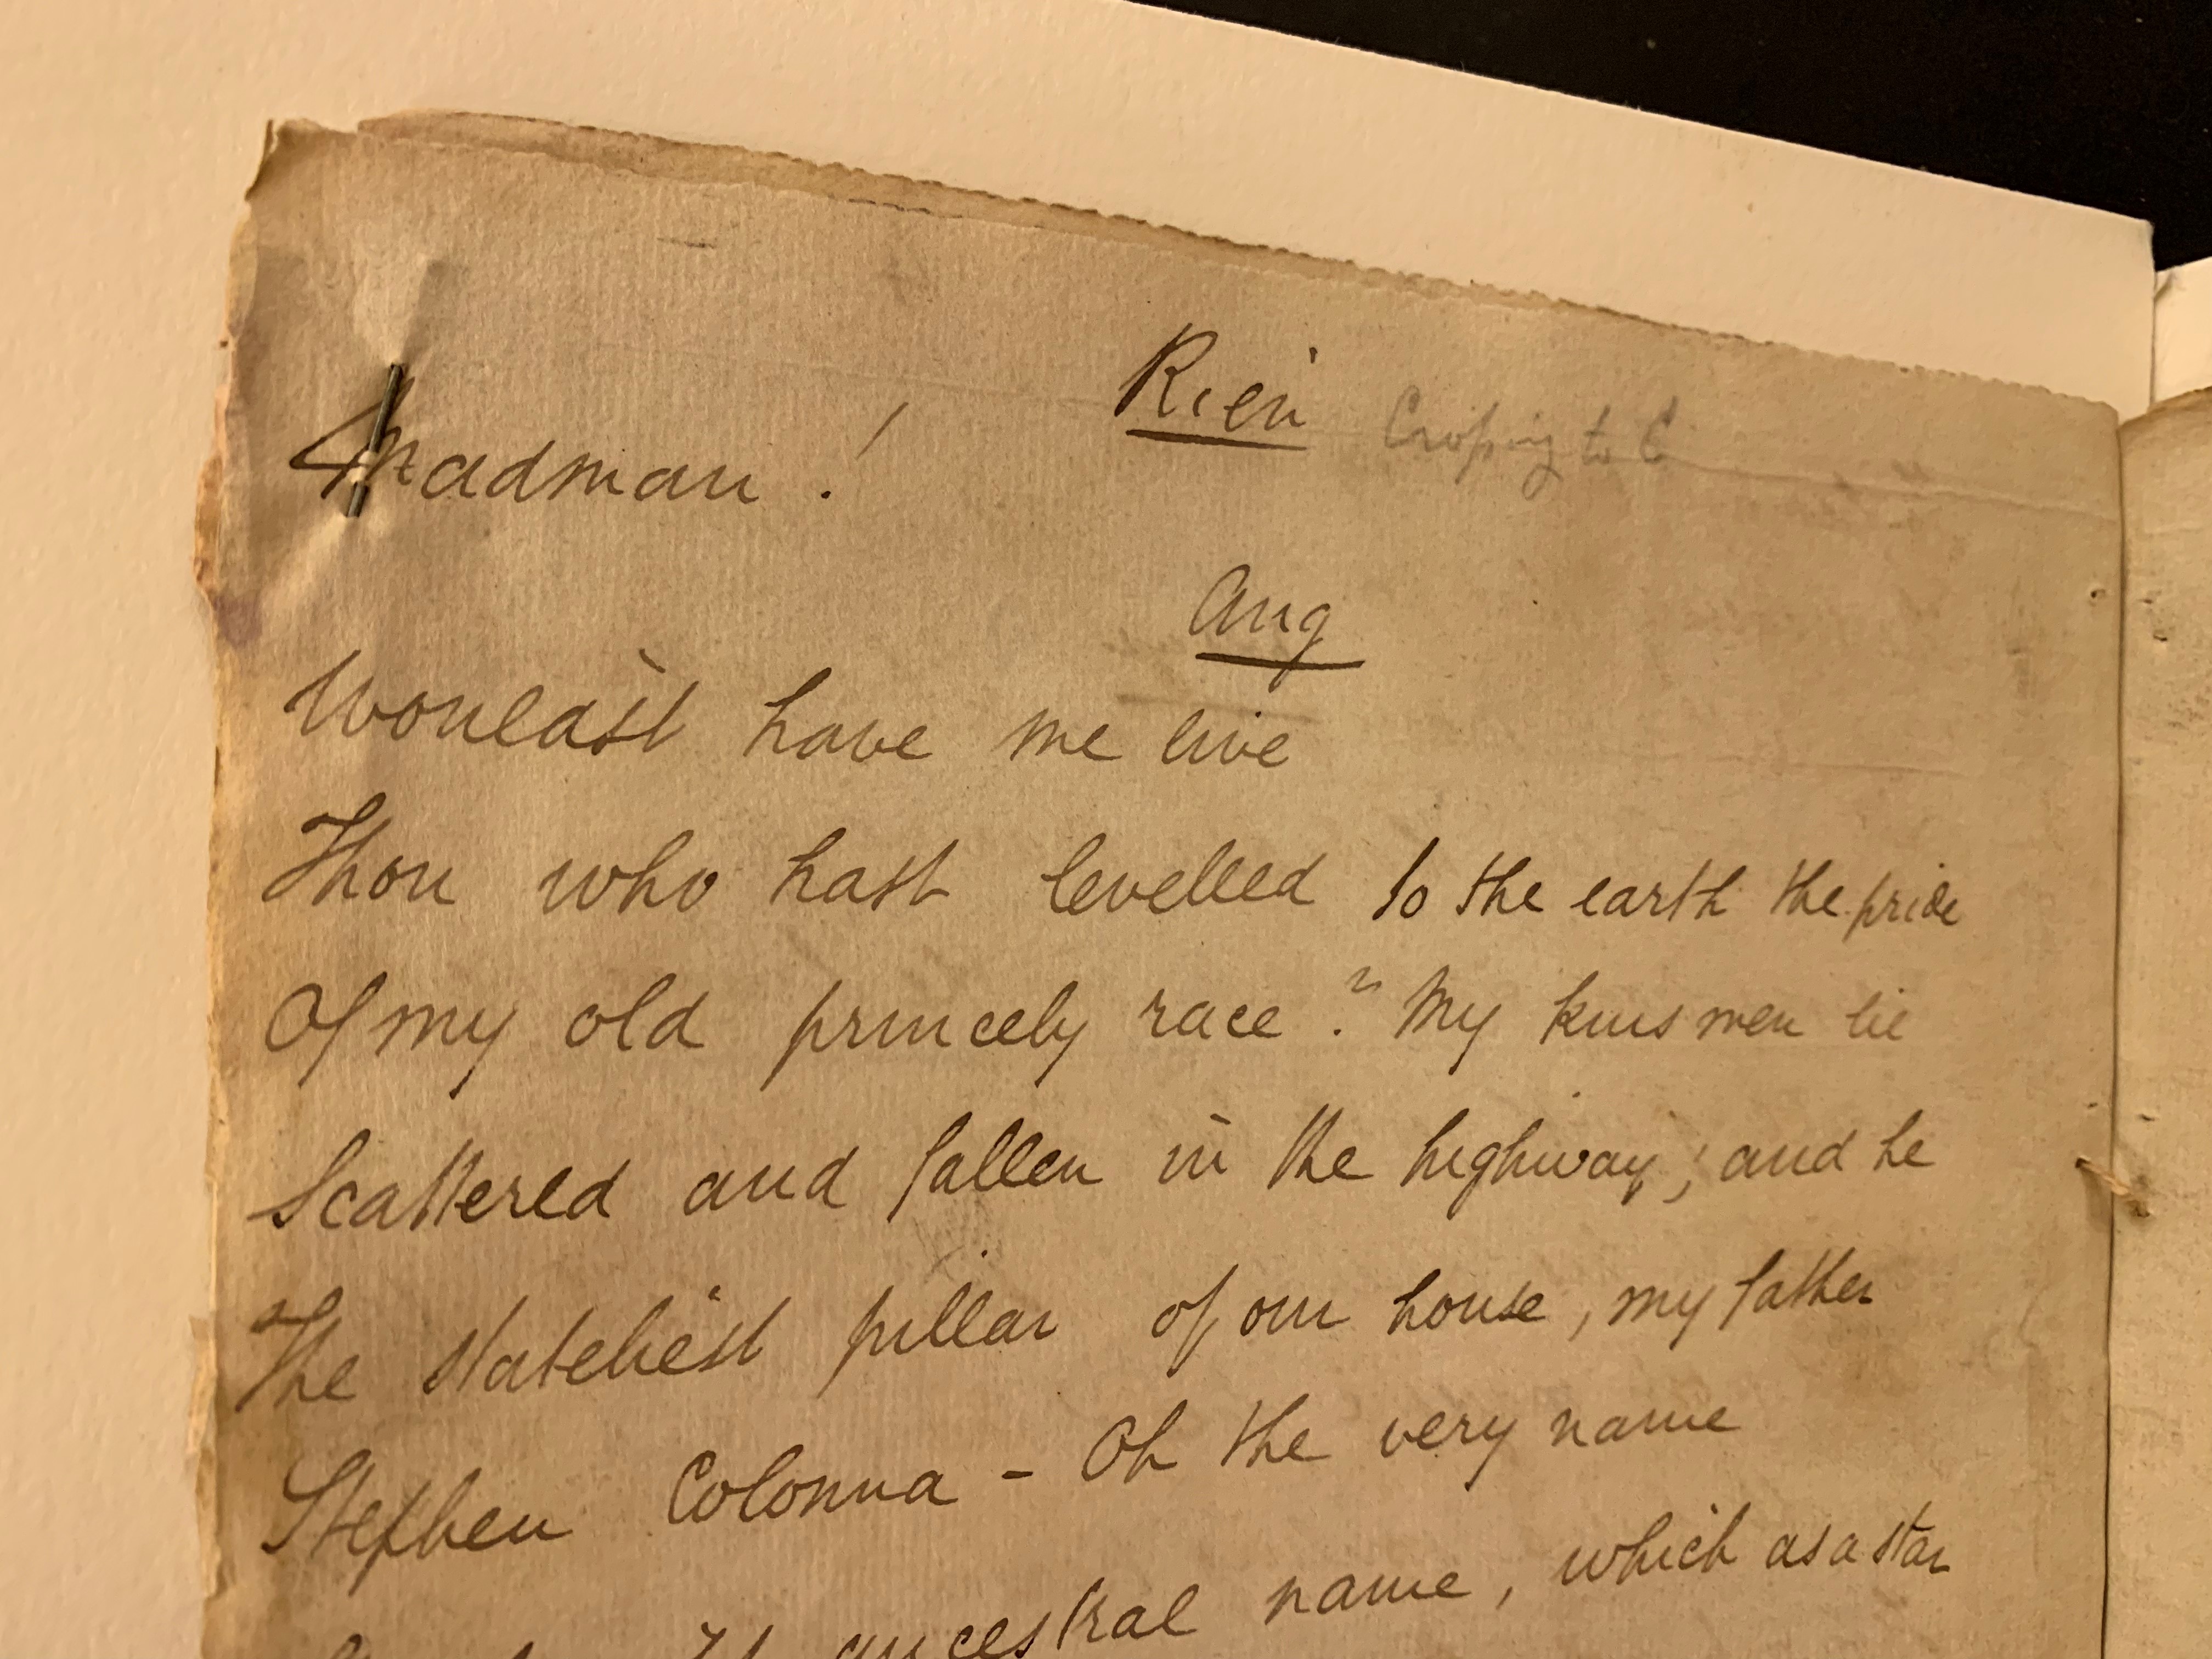 Rien Crossing to C
Madman!
Ang
Wouldst have me live
Thou who hast levelled to the earth the pride
Of my old princely race? My kinsmen lie
Scattered and fallen in the highway; and he
The stateliest pillar of our house, my father
Stephen Colonna - Oh the very name
ancestral name, which as a star